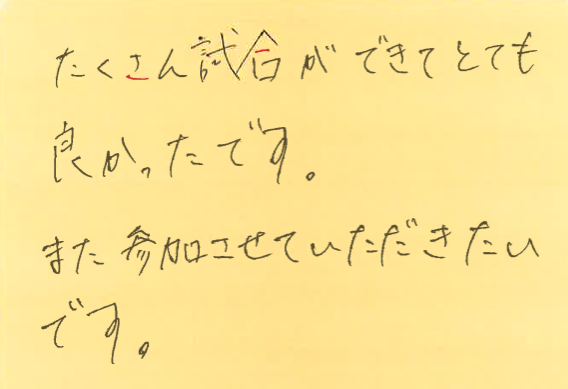 たくさん試合ができてとても
良かったです。
また参加させていただきたい
です。